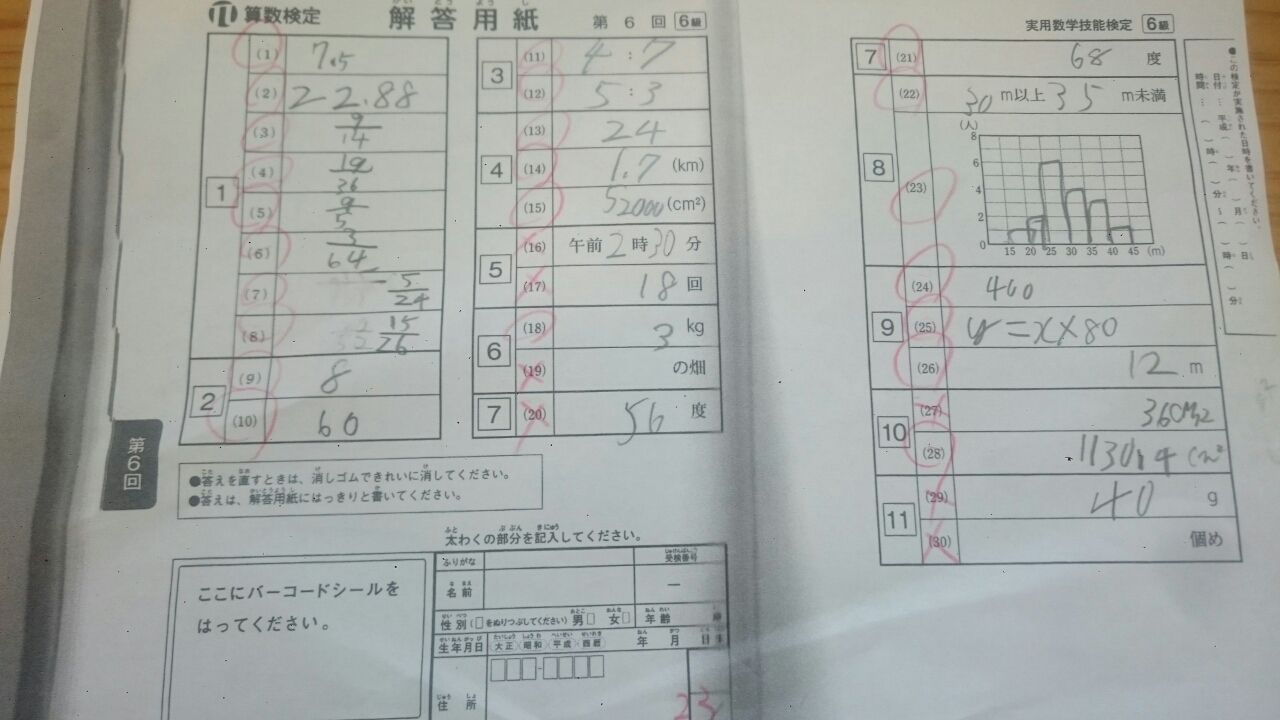 算数検定 解答用紙 第6回 6級
かい とう よう し
1
(1) 7.5
(2) 22.88
(3) 9/14
(4)
(5) 9/5
(6) 3/64
(7) 5/24
(8) 15/26
2
(9) 8
(10) 60
3
(11) 4:7
(12) 5:3
4
(13) 24
(14) 1.7 (km)
(15) 52000 (cm²)
5
(16) 午前2時30分
(17) 18回
6
(18) 3 kg
(19) の畑
7
(20) 56度
第6回
●答えを直すときは、消しゴムできれいに消してください。
●答えは、解答用紙にはっきりと書いてください。
太わくの部分を記入してください。
ここにバーコードシールを
はってください。
ふりがな
受検番号
名前
―
性別(□をぬりつぶしてください) 男□ 女□ 年齢
生年月日 大正 昭和 平成 西暦 年 月
住所
23
実用数学技能検定 6級
7
(21) 68度
8
(22) 30m以上35m未満
(23)
(人)
8
6
4
2
0
15 20 25 30 35 40 45 (m)
9
(24) 400
(25) y=x×80
(26) 12 m
10
(27) 36cm2
(28) 1130.4 cm²
11
(29) 40 g
(30) 個め
●この検定が実施された日時を書いてください。
日付…平成( )年( )月( )日
時間…( )時( )分~( )時( )分